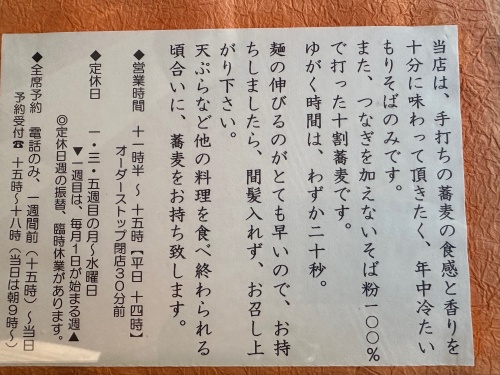 当店は、手打ちの蕎麦の食感と香りを
十分に味わって頂きたく、年中冷たい
もりそばのみです。
また、つなぎを加えないそば粉一〇〇%
で打った十割蕎麦です。
ゆがく時間は、わずか二十秒。
麺の伸びるのがとても早いので、お持
ちしましたら、間髪入れず、お召し上
がり下さい。
天ぷらなど他の料理を食べ終わられる
頃合いに、蕎麦をお持ち致します。
◆営業時間 十一時半～十五時【平日 十四時】
オーダーストップ閉店30分前
◆定休日 一・三・五週目の月～水曜日
▼一週目は、毎月1日が始まる週▲
◎定休日週の振替、臨時休業があります。
◆全席予約 電話のみ、一週間前(十五時)～当日
予約受付☎ 十五時～十八時(当日は朝9時～)